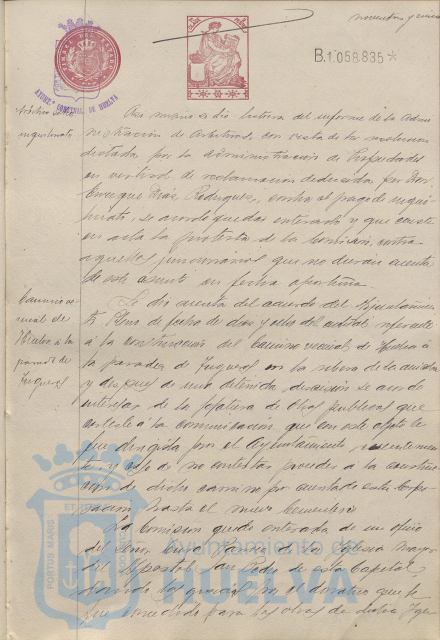 B.1.058.835*
AYUNT.º CONSTNAL. DE HUELVA
Arbitrio sobre
inquilinato
Así mismo se dió lectura del informe de la Admi
nistración de Arbitrios, con vista de la resolución
dictada por la Administración de Propiedades
en virtud de reclamación deducida por Don
Enrique Díaz Rodríguez, contra el pago de inqui-
linato, se acordó quedar enterado y que conste
en acta la protesta de la Comisión, contra
aquellos funcionarios que no dieran cuenta
de este asunto en fecha oportuna.
Camino ve
cinal de
Huelva a la
parada de
Se dió cuenta del acuerdo del Ayuntamien
to Pleno de fecha de dos y ocho del actual referente
á la construcción del camino vecinal de Huelva á
la parada de en la ribera de la
y después de una detenida discusión se acordó
interesar de la Jefatura de Obras públicas que
conteste á la comunicación que con este objeto le
fue dirigida por el Ayuntamiento recientemen
te y caso de no contestar proceder á la construc
ción de dicho camino por cuenta de esta Corpo-
ración hasta el nuevo Cementerio
La Comisión quedó enterada de un oficio
del Señor Cura Párroco de la Iglesia Mayor
del Apostol San Pedro de esta Capital,
dando las gracias por el donativo que le
fue concedido para las obras de dicha Igle
PORTUS MARIS ET TERRAE CUSTODIA
Ayuntamiento de
HUELVA